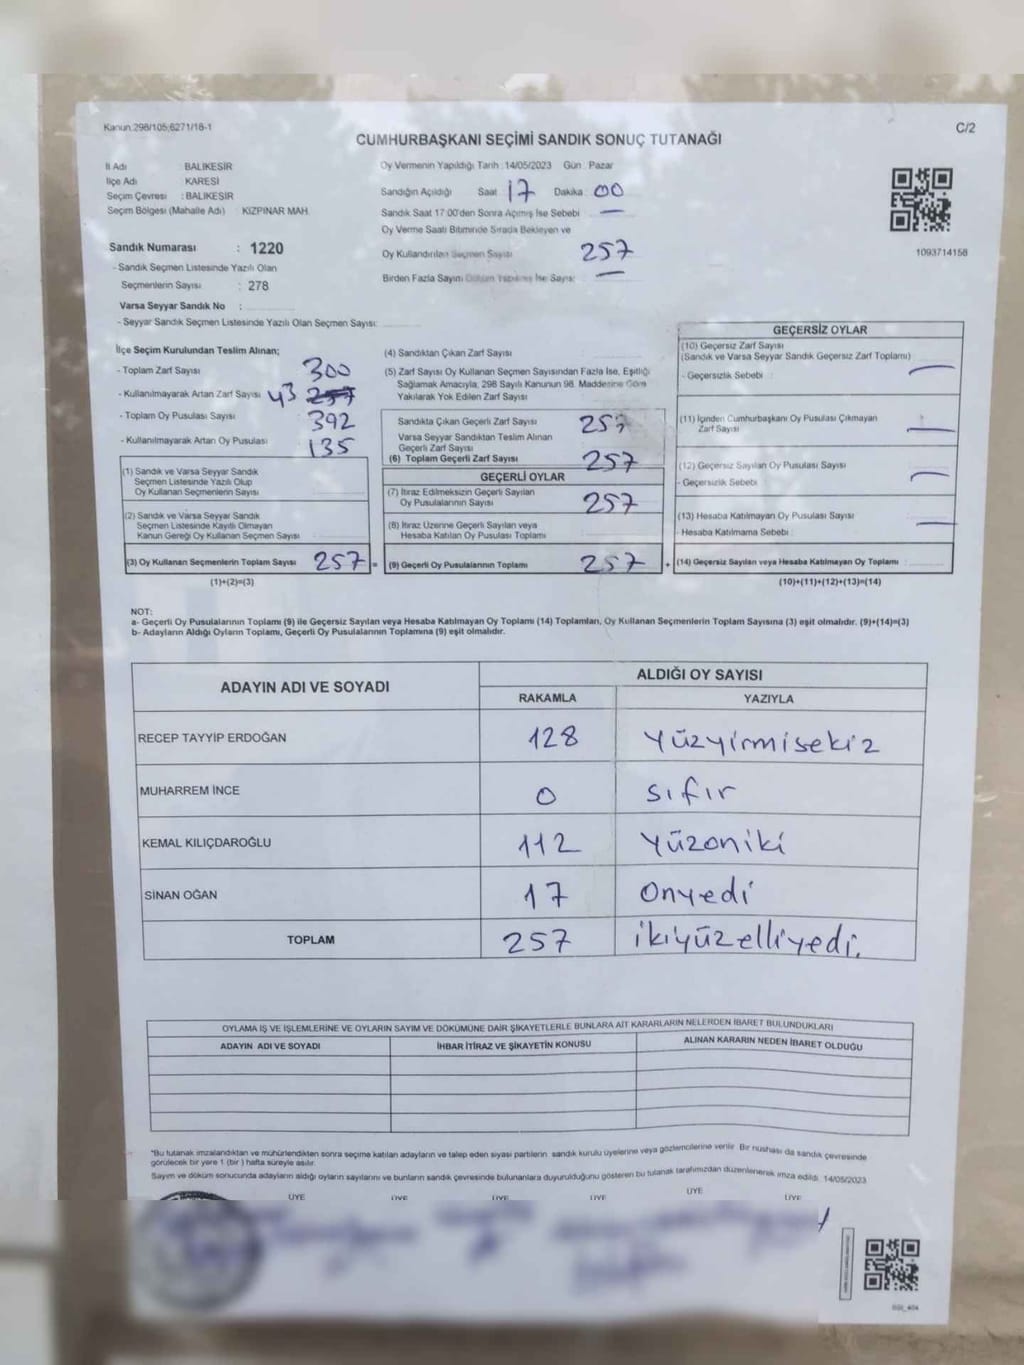 Kanun.298/105;6271/18-1
C/2
CUMHURBAŞKANI SEÇİMİ SANDIK SONUÇ TUTANAĞI
İl Adı BALIKESİR
İlçe Adı KARESİ
Seçim Çevresi : BALIKESİR
Seçim Bölgesi (Mahalle Adı) KIZPINAR MAH.
Oy Vermenin Yapıldığı Tarih :14/05/2023 Gün : Pazar
Sandığın Açıldığı Saat 17 Dakika 00
Sandık Saat 17:00'den Sonra Açımış İse Sebebi —
Oy Verme Saati Bitiminde Sırada Bekleyen ve
Oy Kullandırılan Seçmen Sayısı 257
Birden Fazla Sayım Döküm Yapılmış İse Sayısı —
1093714158
Sandık Numarası : 1220
- Sandık Seçmen Listesinde Yazılı Olan
Seçmenlerin Sayısı : 278
Varsa Seyyar Sandık No :
- Seyyar Sandık Seçmen Listesinde Yazılı Olan Seçmen Sayısı:
İlçe Seçim Kurulundan Teslim Alınan;
- Toplam Zarf Sayısı 300
- Kullanılmayarak Artan Zarf Sayısı 43 257
- Toplam Oy Pusulası Sayısı 392
- Kullanılmayarak Artan Oy Pusulası 135
(1) Sandık ve Varsa Seyyar Sandık
Seçmen Listesinde Yazılı Olup
Oy Kullanan Seçmenlerin Sayısı
(2) Sandık ve Varsa Seyyar Sandık
Seçmen Listesinde Kayıtlı Olmayan
Kanun Gereği Oy Kullanan Seçmen Sayısı
(3) Oy Kullanan Seçmenlerin Toplam Sayısı 257 =
(1)+(2)=(3)
(4) Sandıktan Çıkan Zarf Sayısı
(5) Zarf Sayısı Oy Kullanan Seçmen Sayısından Fazla İse, Eşitliği
Sağlamak Amacıyla, 298 Sayılı Kanunun 98. Maddesine Göre
Yakılarak Yok Edilen Zarf Sayısı
Sandıkta Çıkan Geçerli Zarf Sayısı 257
Varsa Seyyar Sandıktan Teslim Alınan
Geçerli Zarf Sayısı
(6) Toplam Geçerli Zarf Sayısı 257
GEÇERLİ OYLAR
(7) İtiraz Edilmeksizin Geçerli Sayılan
Oy Pusulalarının Sayısı 257
(8) İtiraz Üzerine Geçerli Sayılan veya
Hesaba Katılan Oy Pusulası Toplamı
(9) Geçerli Oy Pusulalarının Toplamı 257 +
GEÇERSİZ OYLAR
(10) Geçersiz Zarf Sayısı
(Sandık ve Varsa Seyyar Sandık Geçersiz Zarf Toplamı)
- Geçersizlik Sebebi : —
(11) İçinden Cumhurbaşkanı Oy Pusulası Çıkmayan
Zarf Sayısı —
(12) Geçersiz Sayılan Oy Pusulası Sayısı
- Geçersizlik Sebebi —
(13) Hesaba Katılmayan Oy Pusulası Sayısı —
- Hesaba Katılmama Sebebi :
(14) Geçersiz Sayılan veya Hesaba Katılmayan Oy Toplamı :
(10)+(11)+(12)+(13)=(14)
NOT:
a- Geçerli Oy Pusulalarının Toplamı (9) ile Geçersiz Sayılan veya Hesaba Katılmayan Oy Toplamı (14) Toplamları, Oy Kullanan Seçmenlerin Toplam Sayısına (3) eşit olmalıdır. (9)+(14)=(3)
b- Adayların Aldığı Oyların Toplamı, Geçerli Oy Pusulalarının Toplamına (9) eşit olmalıdır.
ADAYIN ADI VE SOYADI
ALDIĞI OY SAYISI
RAKAMLA YAZIYLA
RECEP TAYYİP ERDOĞAN 128 Yüzyirmisekiz
MUHARREM İNCE 0 sıfır
KEMAL KILIÇDAROĞLU 112 Yüzoniki
SİNAN OĞAN 17 Onyedi
TOPLAM 257 ikiyüzelliyedi.
OYLAMA İŞ VE İŞLEMLERİNE VE OYLARIN SAYIM VE DÖKÜMÜNE DAİR ŞİKAYETLERLE BUNLARA AİT KARARLARIN NELERDEN İBARET BULUNDUKLARI
ADAYIN ADI VE SOYADI İHBAR İTİRAZ VE ŞİKAYETİN KONUSU ALINAN KARARIN NEDEN İBARET OLDUĞU
*Bu tutanak imzalandıktan ve mühürlendikten sonra seçime katılan adayların ve talep eden siyasi partilerin sandık kurulu üyelerine veya gözlemcilerine verilir. Bir nushası da sandık çevresinde
görülecek bir yere 1 (bir) hafta süreyle asılır.
Sayım ve döküm sonucunda adayların aldığı oyların sayılarını ve bunların sandık çevresinde bulunanlara duyurulduğunu gösteren bu tutanak tarafımızdan düzenlenerek imza edildi. 14/05/2023
ÜYE ÜYE ÜYE ÜYE ÜYE ÜYE